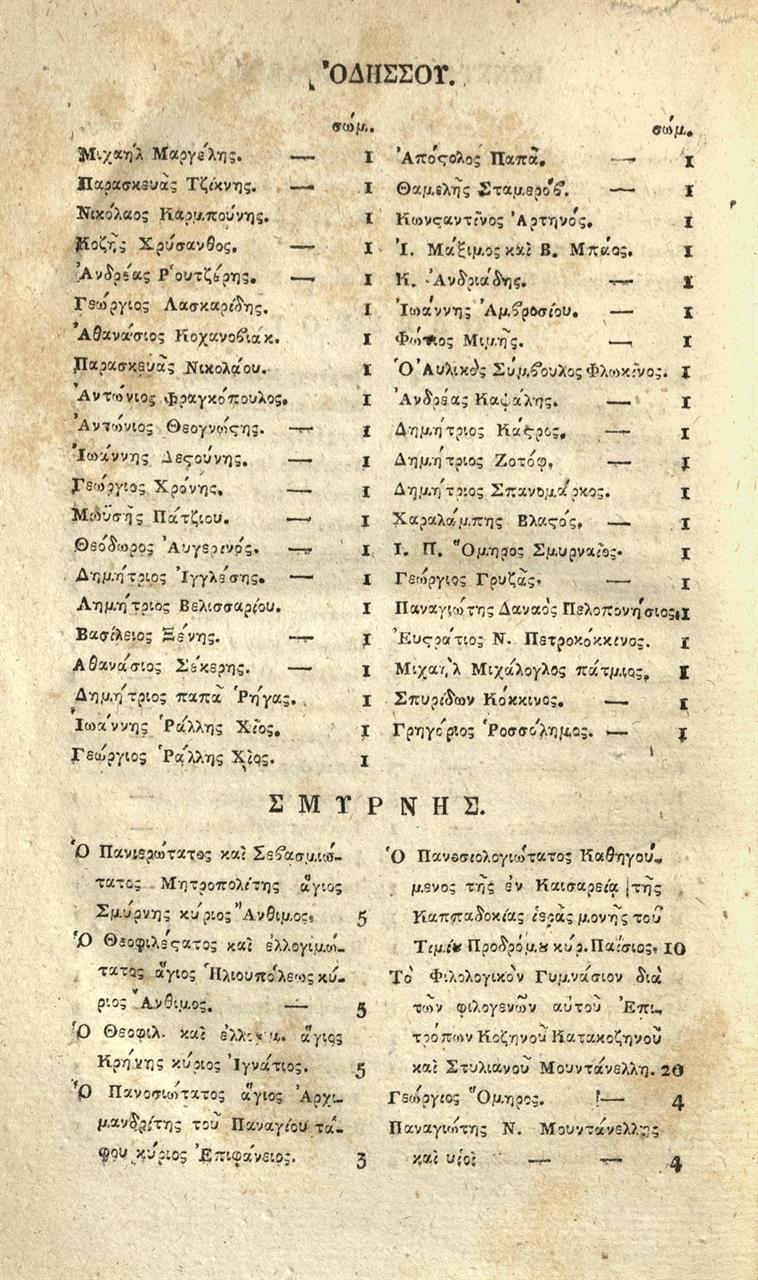 ὈΔΗΣΣΟΥ.
σώμ.
Μιχαὴλ Μαργέλης. — 1
Παρασκευᾶς Τζίκνης. — 1
Νικόλαος Καρμπούνης. 1
Κοζῆς Χρύσανθος. — 1
Ἀνδρέας Ῥουτζέρης. — 1
Γεώργιος Λασκαρίδης. 1
Ἀθανάσιος Κοχανοβιακ. 1
Παρασκευᾶς Νικολάου. 1
Ἀντώνιος Φραγκόπουλος. 1
Ἀντώνιος Θεογνώϛης. — 1
Ἰωάννης Δεϛούνης. — 1
Γεώργιος Χρόνης. — 1
Μωϋσῆς Πάτζιου. — 1
Θεόδωρος Αὐγερινός. — 1
Δημήτριος Ἰγγλέσης. — 1
Δημήτριος Βελισσαρίου. 1
Βασίλειος Ξένης. — 1
Ἀθανάσιος Σέκερης. — 1
Δημήτριος παπᾶ Ῥήγας. 1
Ἰωάννης Ῥάλλης Χῖος. 1
Γεώργιος Ῥάλλης Χῖος. 1
σώμ.
Ἀπόϛολος Παπᾶ. — 1
Θαμελῆς Σταμερόβ. — 1
Κωνϛαντῖνος Ἀρτηνός. 1
Ἰ. Μάξιμος καὶ Β. Μπάος. 1
Κ. Ἀνδριάδης. — 1
Ἰωάννης Ἀμβροσίου. — 1
Φώτιος Μιμῆς. — 1
Ὁ Αὐλικὸς Σύμβουλος Φλωκῖνος. 1
Ἀνδρέας Καψάλης. — 1
Δημήτριος Κάϛρος. — 1
Δημήτριος Ζοτόφ. — 1
Δημήτριος Σπανομάρκος. 1
Χαραλάμπης Βλαϛός. — 1
Ι. Π. Ὅμηρος Σμυρναῖος. 1
Γεώργιος Γρυζᾶς. — 1
Παναγιώτης Δαναὸς Πελοπονήσιος. 1
Εὐϛράτιος Ν. Πετροκόκκινος. 1
Μιχαὴλ Μιχάλογλος πάτμιος. 1
Σπυρίδων Κόκκινος. — 1
Γρηγόριος Ῥοσσόλημος. — 1
ΣΜΥΡΝΗΣ.
Ὁ Πανιερώτατος καὶ Σεβασμιώ-
τατος Μητροπολίτης ἅγιος
Σμύρνης κύριος Ἄνθιμος. 5
Ὁ Θεοφιλέϛατος καὶ ἐλλογιμώ-
τατος ἅγιος Ἡλιουπόλεως κύ-
ριος Ἄνθιμος. — 5
Ὁ Θεοφιλ. καὶ ἐλλογιμ. ἅγιος
Κρήνης κύριος Ἰγνάτιος. 5
Ὁ Πανοσιώτατος ἅγιος Ἀρχι-
μανδρίτης τοῦ Παναγίου τά-
φου κύριος Ἐπιφάνειος. 3
Ὁ Πανοσιολογιώτατος Καθηγού-
μενος τῆς ἐν Καισαρείᾳ τῆς
Καππαδοκίας ἱερᾶς μονῆς τοῦ
Τιμίȣ Προδρόμȣ κύρ. Παΐσιος. 10
Τὸ Φιλολογικὸν Γυμνάσιον διὰ
τῶν φιλογενῶν αὐτοῦ Ἐπι-
τρόπων Κοζηνοῦ Κατακοζηνοῦ
καὶ Στυλιανοῦ Μουντάνελλη. 20
Γεώργιος Ὅμηρος. — 4
Παναγιώτης Ν. Μουντάνελλης
καὶ υἱοὶ — — 4